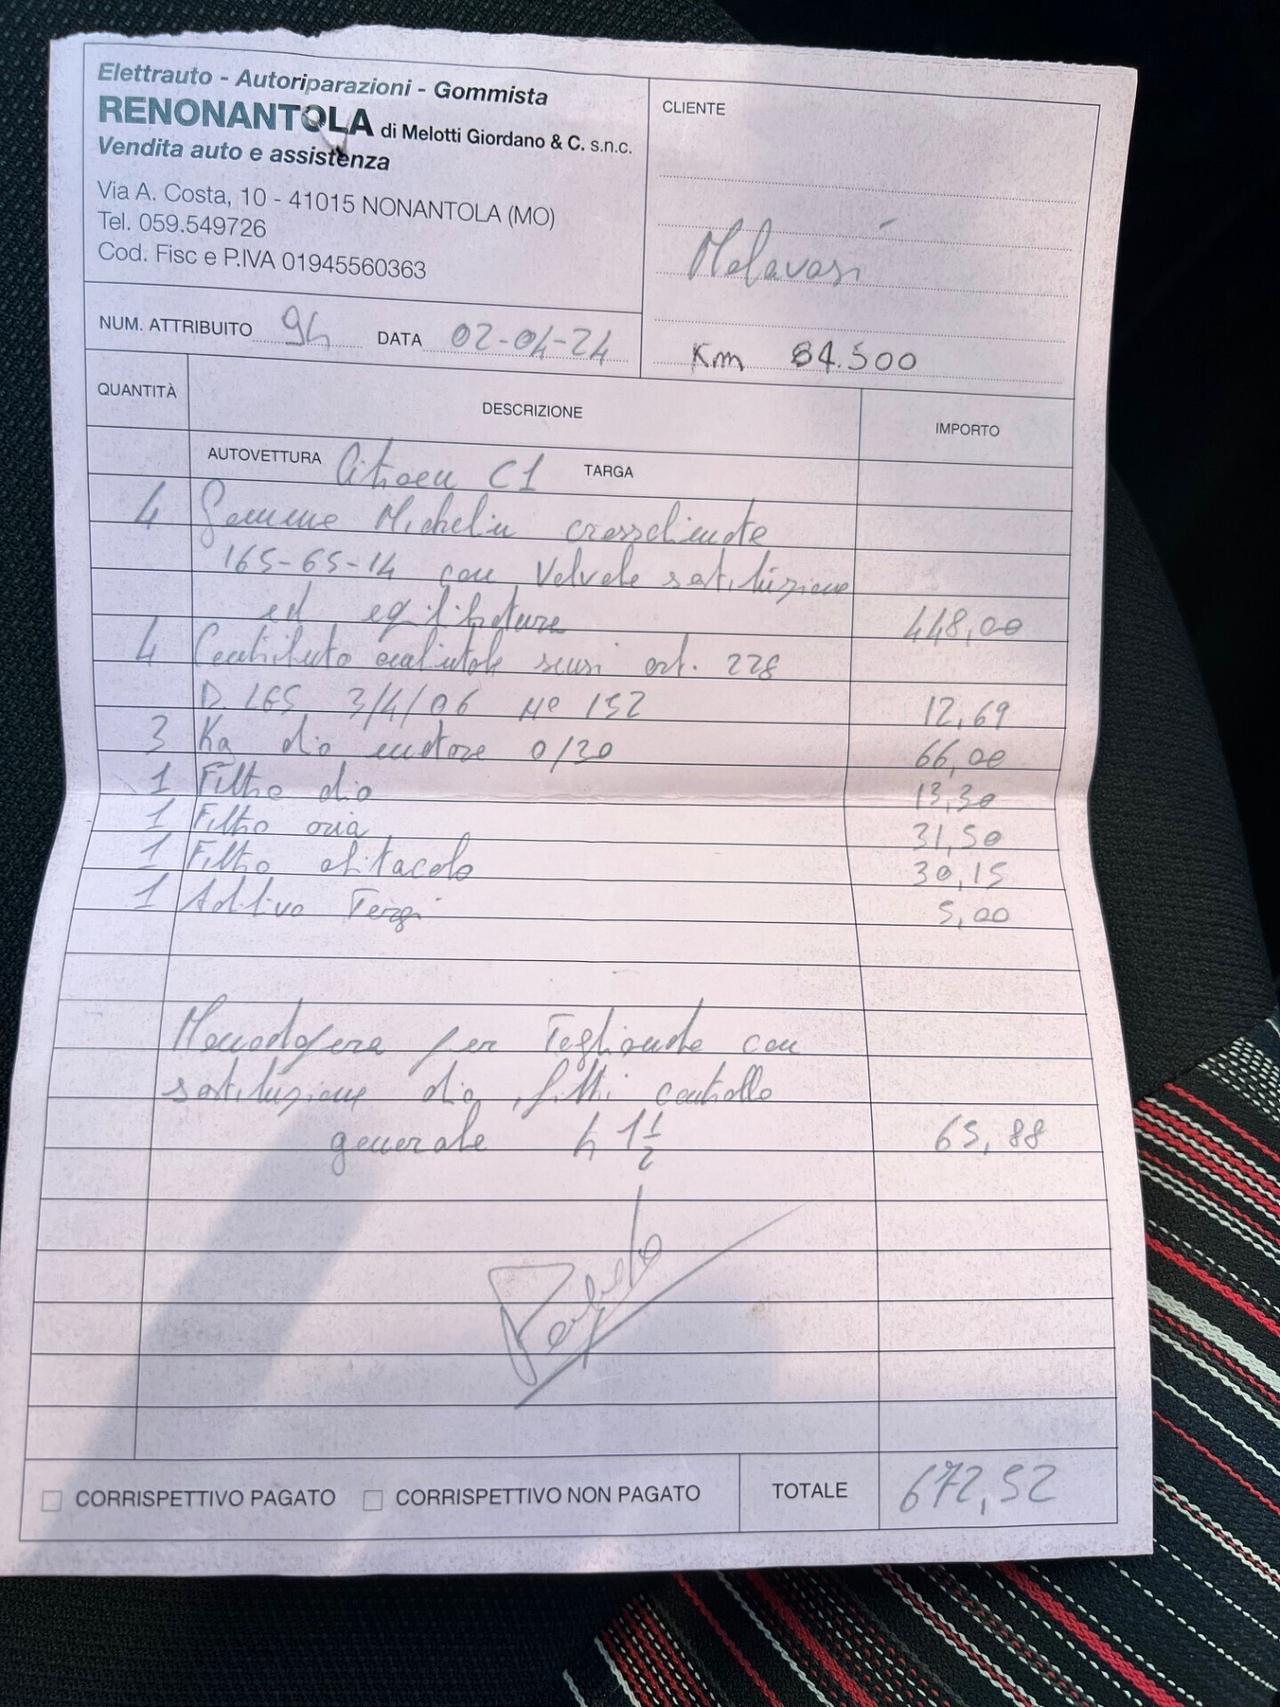 Elettrauto - Autoriparazioni - Gommista
RENONANTOLA di Melotti Giordano & C. s.n.c.
Vendita auto e assistenza
Via A. Costa, 10 - 41015 NONANTOLA (MO)
Tel. 059.549726
Cod. Fisc e P.IVA 01945560363
CLIENTE
Malavasi
Km 84.500
NUM. ATTRIBUITO 94 DATA 02-04-24
QUANTITÀ DESCRIZIONE IMPORTO
AUTOVETTURA Citroen C1 TARGA
4 Gomme Michelin crossclimate
165-65-14 con Valvole sostituzione
ed equilibratura 448,00
4 Contributo ambientale sensi art. 228
D. LGS 3/4/06 N° 152 12,69
3 Kg olio motore 0/30 66,00
1 Filtro olio 13,30
1 Filtro aria 31,50
1 Filtro abitacolo 30,15
1 Aditivo Tergi 5,00
Manodopera per Tagliando con
sostituzione olio, filtri controllo
generale h 1 1/2 65,88
CORRISPETTIVO PAGATO CORRISPETTIVO NON PAGATO TOTALE 672,52